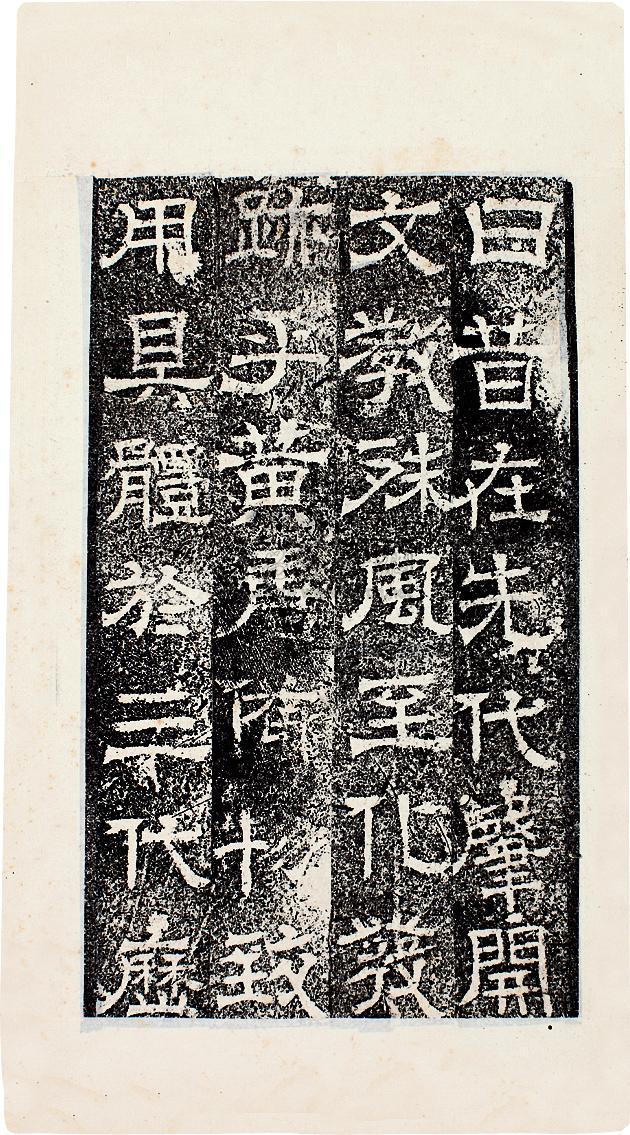 曰昔在先代肇開
文教殊風至化發
跡乎黃唐備物致
用具體於三代歷